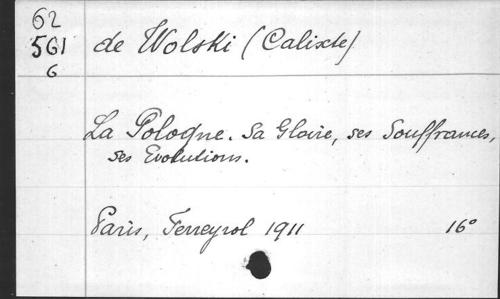 62
561
6
de Wolski (Calixte)
La Pologne. Sa Gloire, ses Souffrances,
ses Evolutions.
Paris, Ferreyrol 1911 16°